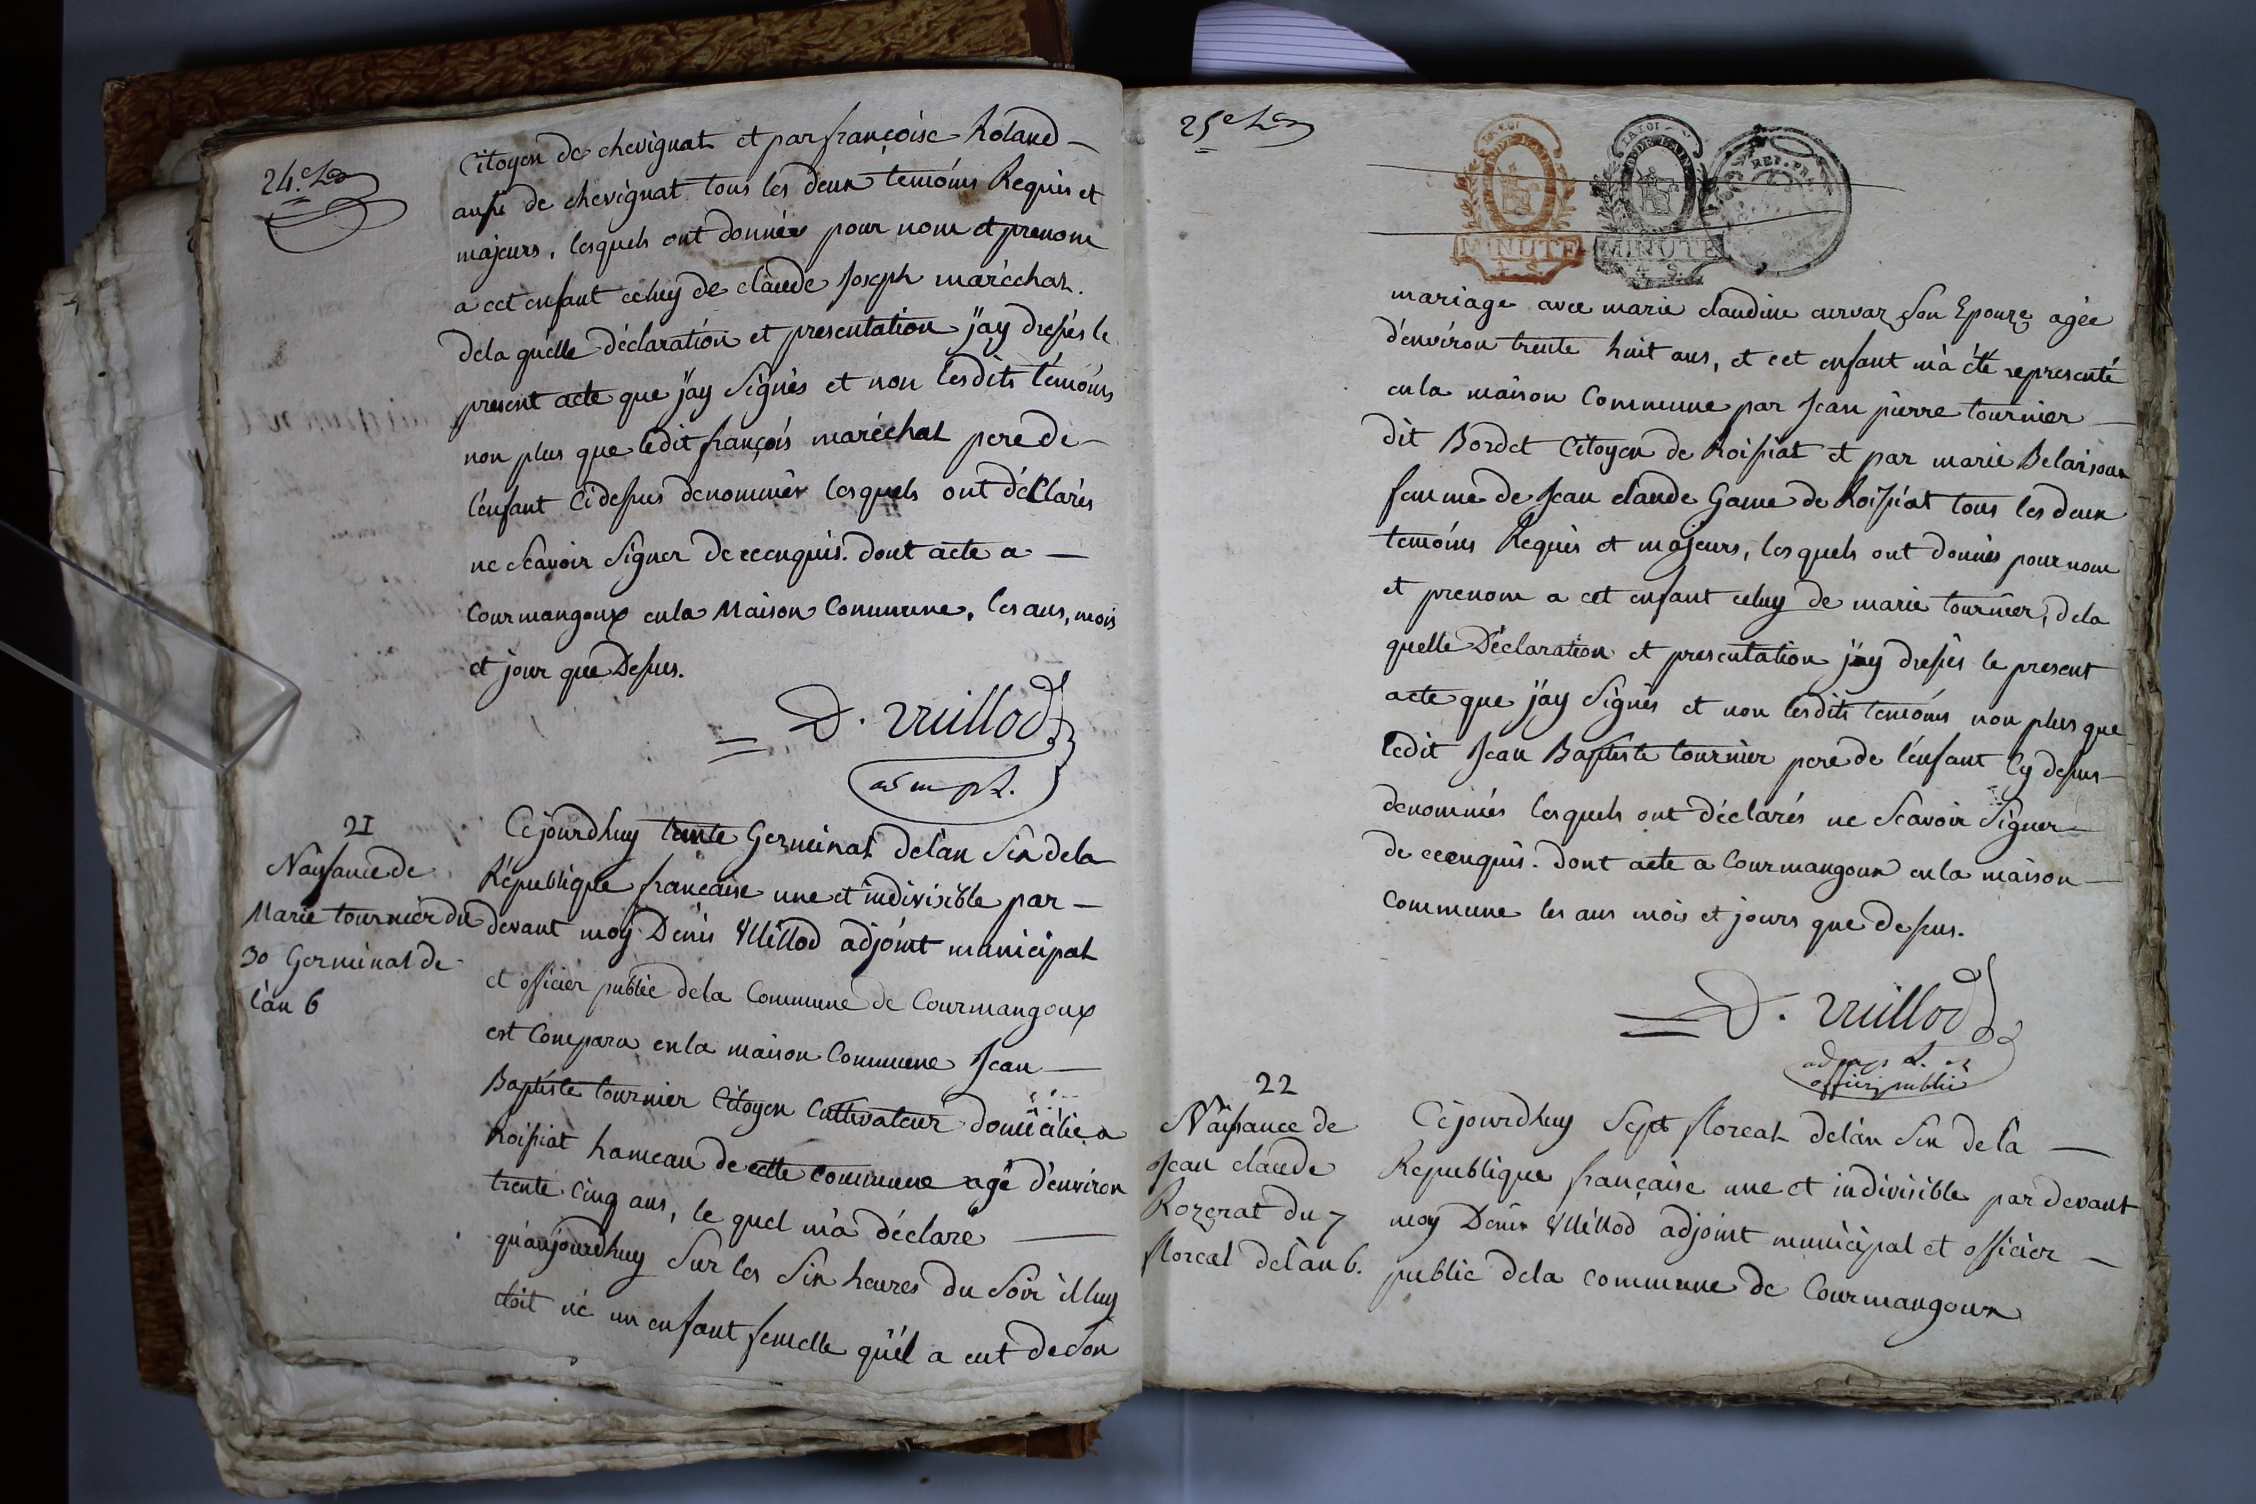 24.e
citoyen de chevignat et par françoise Roland –
aussi de chevignat tous les deux témoins Requis et
majeurs, lesquels ont donnés pour nom et prenom
a cet enfant celuy de claude Joseph maréchal.
dela quélle déclaration et presentation j'ay dressés le
present acte que j'ay signés et non lesdits témoins
non plus que ledit françois maréchal pere de –
l'enfant cidessus denommés lesquels ont déclarés
ne scavoir signer de ce enquis. dont acte a –
Courmangoux en la maison Commune, les ans, mois
et jour que Dessus.
D. vuillod
21
Naissance de
Marie tournier du
30 Germinal de
l'an 6
Cejourdhuy trente Germinal delan Six dela
République francaise une et indivisible par –
devant moy Denis Vuillod adjoint municipal
et officier public dela Commune de Courmangoux
est Comparu en la maison Commune Jean –
Baptiste tournier Citoyen Cultivateur domicilié a
Roissiat hameau de cette commune agé d'environ
trente cinq ans, le quel m'a déclaré –
qu'aujourdhuy sur les six heures du soir il luy
etoit né un enfant femelle qu'il a eut de son
25e
LA LOI
MINUTE
4 S.
LA LOI
MINUTE
4 S.
REP. FRA
mariage avec marie claudine curvar son Epouze agée
d'environ trente huit ans, et cet enfant m'a été representé
en la maison Commune par Jean pierre tournier –
dit Bordet Citoyen de Roissiat et par marie Belaisoux
femme de Jean claude Game de Roissiat tous les deux
temoins Requis et majeurs, lesquels ont donnés pour nom
et prenom a cet enfant celuy de marie tournier, dela
quelle Déclaration et presentation j'ay dressés le present
acte que j'ay signés et non lesdits temoins non plus que
ledit Jean Baptiste tournier pere de l'enfant Cy dessus –
denommés lesquels ont déclarés ne scavoir signer –
de ceenquis. dont acte a Courmangoux en la maison –
Commune les ans mois et jours que dessus.
D. vuillod
officier public
22
Naissance de
Jean claude
Rozerat du 7
floreal delan 6.
Cejourdhuy sept floreal delan six de la –
Republique française une et indivisible par devant
moy Denis Vuillod adjoint municipal et officier –
public dela commune de Courmangoux